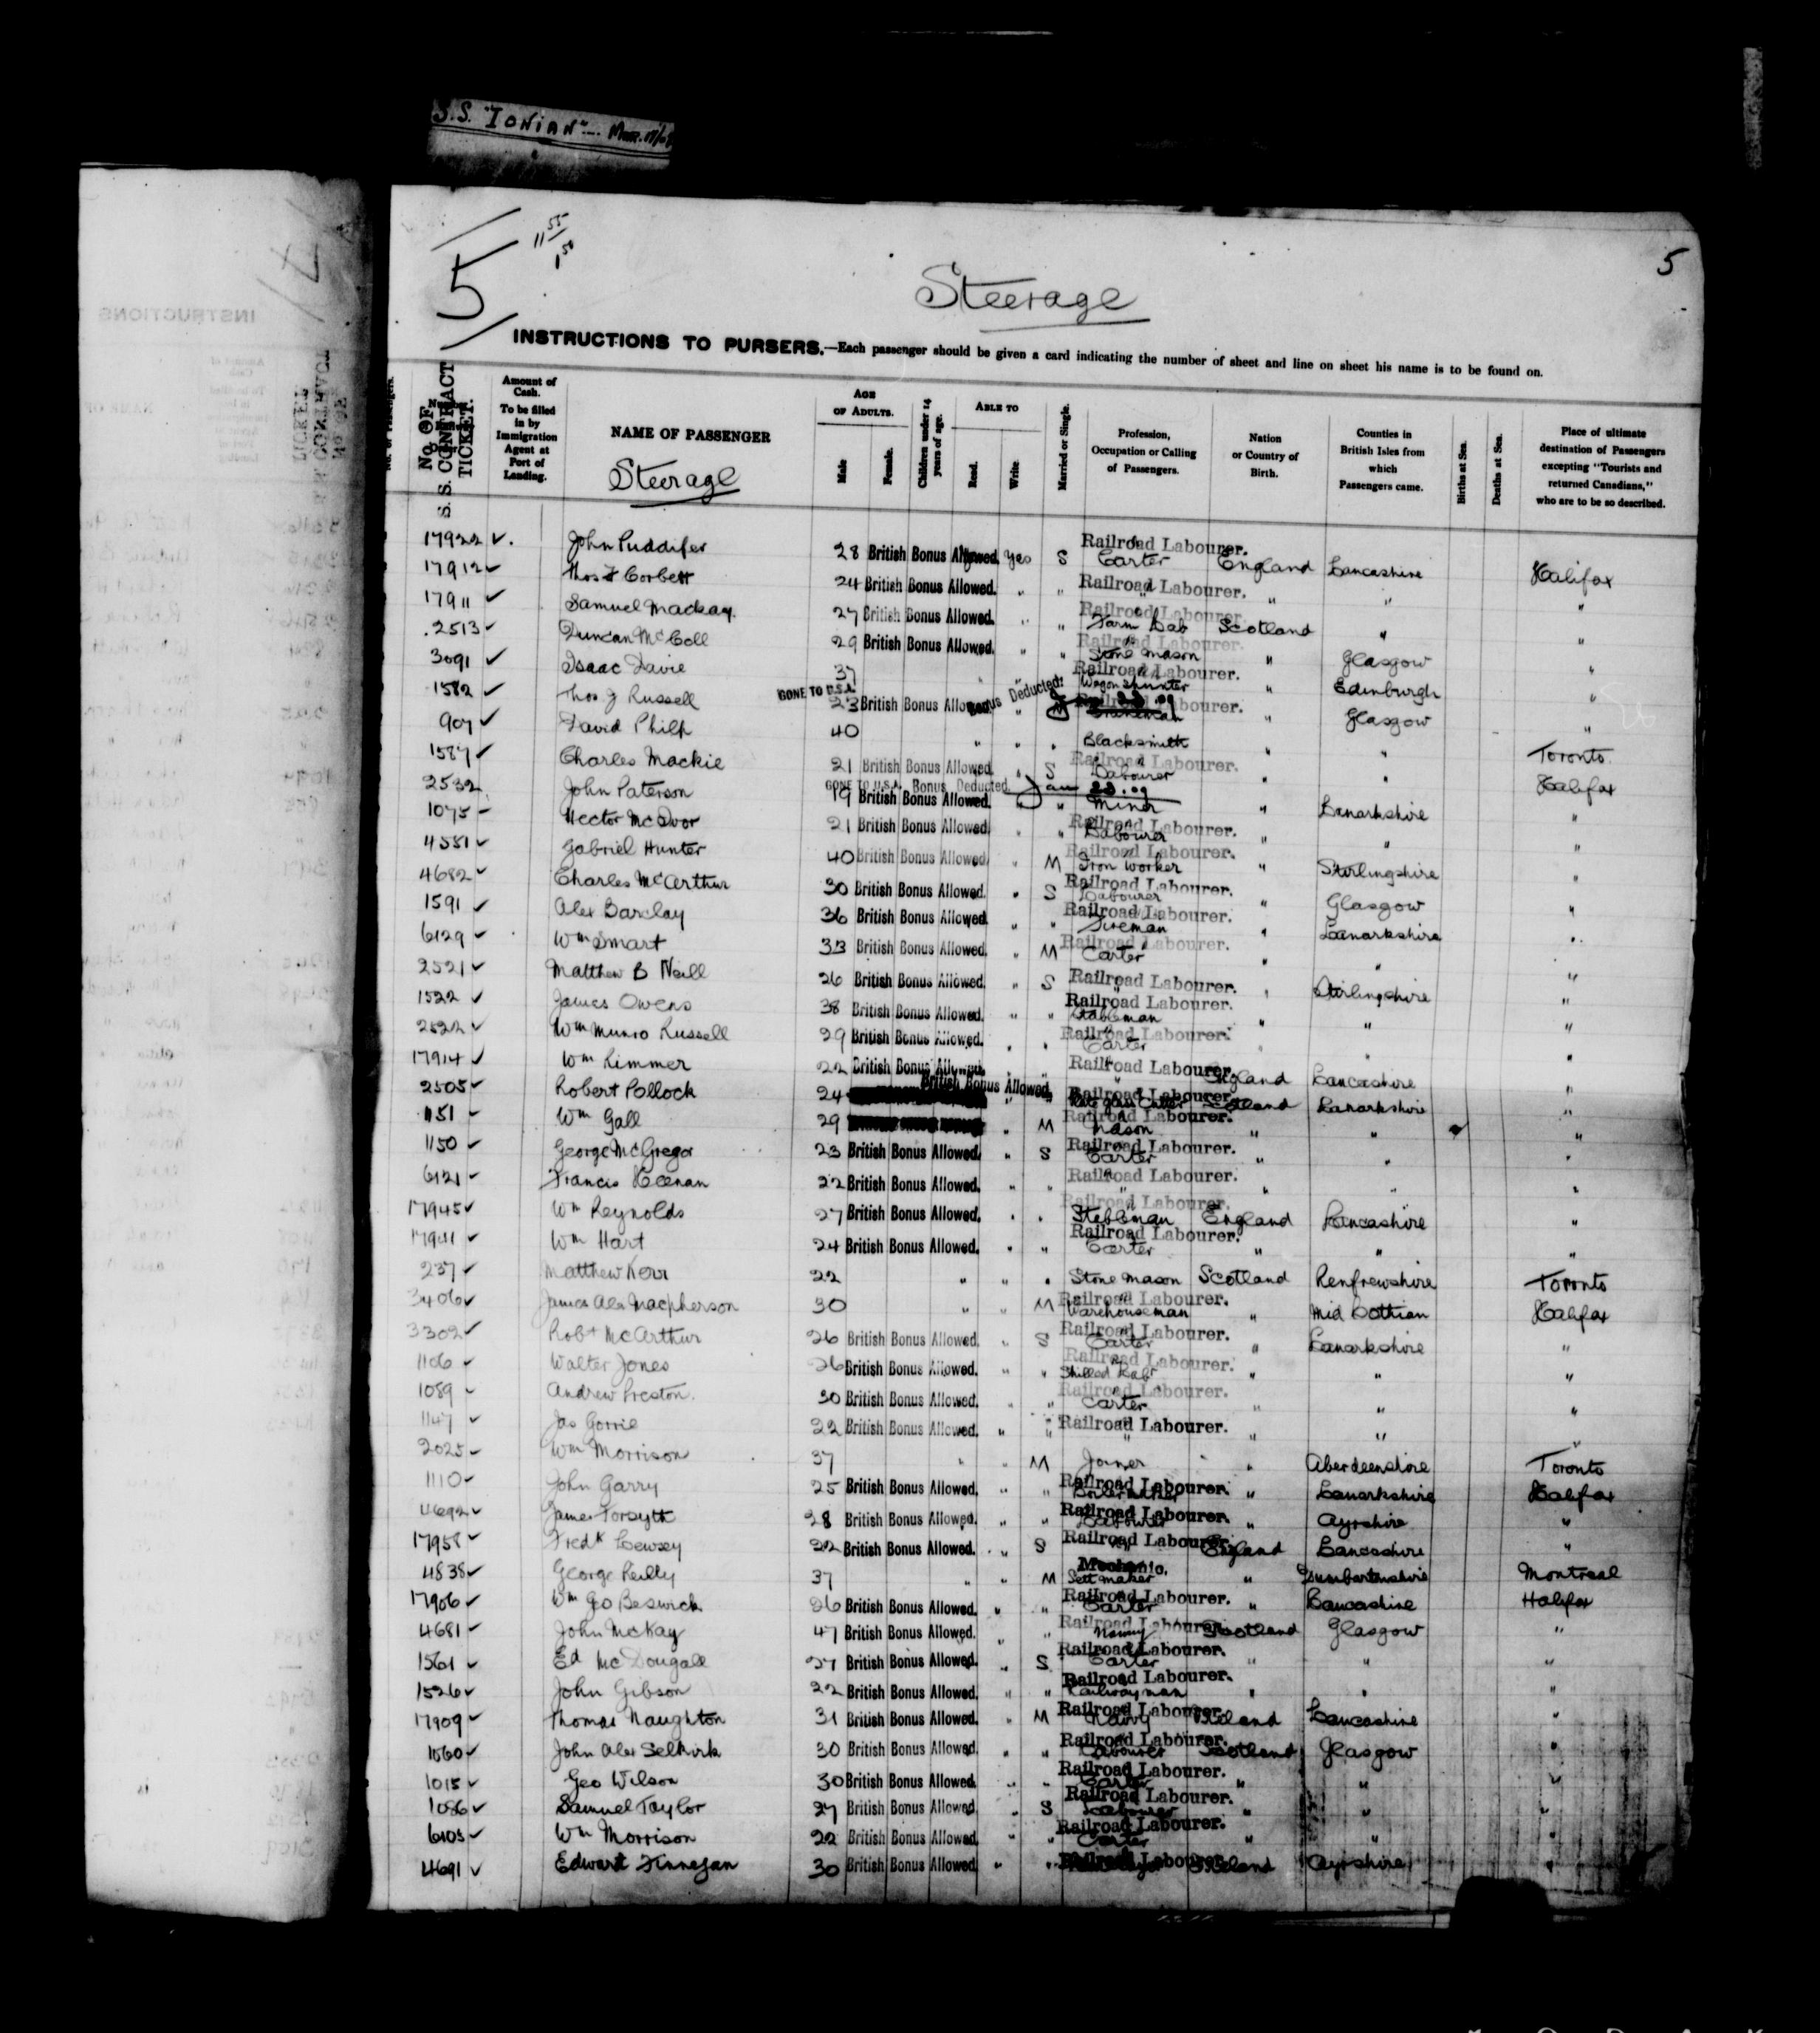 S.S. "IONIAN"
5
11 55/
1 50
5
Steerage
INSTRUCTIONS TO PURSERS.—Each passenger should be given a card indicating the number of sheet and line on sheet his name is to be found on.
No. OF S.S. CONTRACT TICKET.
Amount of Cash. To be filled in by Immigration Agent at Port of Landing.
NAME OF PASSENGER
Steerage
AGE OF ADULTS.
Male
Female.
Children under 14 years of age.
ABLE TO
Read.
Write
Married or Single.
Profession, Occupation or Calling of Passengers.
Nation or Country of Birth.
Counties in British Isles from which Passengers came.
Births at Sea.
Deaths at Sea.
Place of ultimate destination of Passengers excepting "Tourists and returned Canadians," who are to be so described.
17922 ✓ John Puddifer 28 British Bonus Allowed. Yes S Railroad Labourer. Carter England Lancashire Halifax
17912 ✓ Thos Corbett 24 British Bonus Allowed. " " Railroad Labourer. " " "
17911 ✓ Samuel Mackay 27 British Bonus Allowed. " " Railroad Labourer. Farm Lab Scotland " "
2513 ✓ Duncan McColl 29 British Bonus Allowed. " " Railroad Labourer. Stone Mason " Glasgow "
3091 ✓ Isaac Davie 37 " Railroad Labourer. Wagon Shunter " Edinburgh "
1582 ✓ Thos J Russell GONE TO U.S.A. 23 British Bonus Allowed. Bonus Deducted. Railroad Labourer. " Glasgow "
907 ✓ David Philp 40 " " " Blacksmith " " Toronto
1587 ✓ Charles Mackie 21 British Bonus Allowed. " S Railroad Labourer. Labourer " " Halifax
2532 John Paterson GONE TO U.S.A. Bonus Deducted. Jan 23.09 19 British Bonus Allowed. " " Miner " Lanarkshire "
1075 Hector McIvor 21 British Bonus Allowed. " " Railroad Labourer. Labourer " " "
4551 ✓ Gabriel Hunter 40 British Bonus Allowed. " M Railroad Labourer. Iron Worker " Stirlingshire "
4682 ✓ Charles McArthur 30 British Bonus Allowed. " S Railroad Labourer. Labourer " Glasgow "
1591 ✓ Alex Barclay 36 British Bonus Allowed. " " Railroad Labourer. Fireman " Lanarkshire "
6129 ✓ Wm Smart 33 British Bonus Allowed. " M Railroad Labourer. Carter " " "
2521 ✓ Matthew B Neill 26 British Bonus Allowed. " S Railroad Labourer. " " Stirlingshire "
1522 ✓ James Owens 38 British Bonus Allowed. " " Railroad Labourer. Stableman " " "
2522 ✓ Wm Munro Russell 29 British Bonus Allowed. " " Railroad Labourer. Carter " " "
17914 ✓ Wm Rimmer 22 British Bonus Allowed. " " Railroad Labourer. " England Lancashire "
2505 ✓ Robert Pollock 24 British Bonus Allowed. " " Railroad Labourer. Plate Glass Cutter Scotland Lanarkshire "
1151 ✓ Wm Gall 29 " M Railroad Labourer. Mason " " "
1150 ✓ George McGregor 23 British Bonus Allowed. " S Railroad Labourer. Carter " " "
6121 ✓ Francis Keenan 22 British Bonus Allowed. " " Railroad Labourer. " " " "
17945 ✓ Wm Reynolds 27 British Bonus Allowed. " " Railroad Labourer. Stableman England Lancashire "
17941 ✓ Wm Hart 24 British Bonus Allowed. " " Railroad Labourer. Carter " " "
237 ✓ Matthew Kerr 22 " " " Stone Mason Scotland Renfrewshire Toronto
3406 ✓ James Alex Macpherson 30 " " M Railroad Labourer. Warehouseman " Mid Lothian Halifax
3302 ✓ Robt McArthur 26 British Bonus Allowed. " S Railroad Labourer. Carter " Lanarkshire "
1106 ✓ Walter Jones 26 British Bonus Allowed. " " Railroad Labourer. Skilled Labr " " "
1089 ✓ Andrew Preston. 30 British Bonus Allowed. " " Railroad Labourer. Carter " " "
1147 ✓ Jas Gorrie 22 British Bonus Allowed. " " Railroad Labourer. " " " "
2025 ✓ Wm Morrison 37 " " M Joiner " Aberdeenshire Toronto
1110 ✓ John Garry 25 British Bonus Allowed. " " Railroad Labourer. Boilermaker " Lanarkshire Halifax
4692 ✓ James Forsyth 28 British Bonus Allowed. " " Railroad Labourer. Labourer " Ayrshire "
17958 ✓ Fredk Lewsey 22 British Bonus Allowed. " S Railroad Labourer. England Lancashire "
4838 ✓ George Reilly 37 " " M Mechanic. Sett maker " Dumbartonshire Montreal
17906 ✓ Wm Go Beswick 26 British Bonus Allowed. " " Railroad Labourer. Carter " Lancashire Halifax
4681 ✓ John McKay 47 British Bonus Allowed. " " Railroad Labourer. Scotland Glasgow "
1561 ✓ Ed McDougall 27 British Bonus Allowed. " S Railroad Labourer. Carter " " "
1526 ✓ John Gibson 22 British Bonus Allowed. " " Railroad Labourer. Railwayman " " "
17909 ✓ Thomas Naughton 31 British Bonus Allowed. " M Railroad Labourer. Navvy Ireland Lancashire "
1560 ✓ John Alex Selkirk 30 British Bonus Allowed. " " Railroad Labourer. Labourer Scotland Glasgow "
1015 ✓ Geo Wilson 30 British Bonus Allowed. " " Railroad Labourer. Carter " " "
1086 ✓ Samuel Taylor 27 British Bonus Allowed. " S Railroad Labourer. Labourer " " "
6105 ✓ Wm Morrison 22 British Bonus Allowed. " " Railroad Labourer. Carter " " "
4691 ✓ Edward Finnegan 30 British Bonus Allowed. " " Railroad Labourer. Ireland Ayrshire "